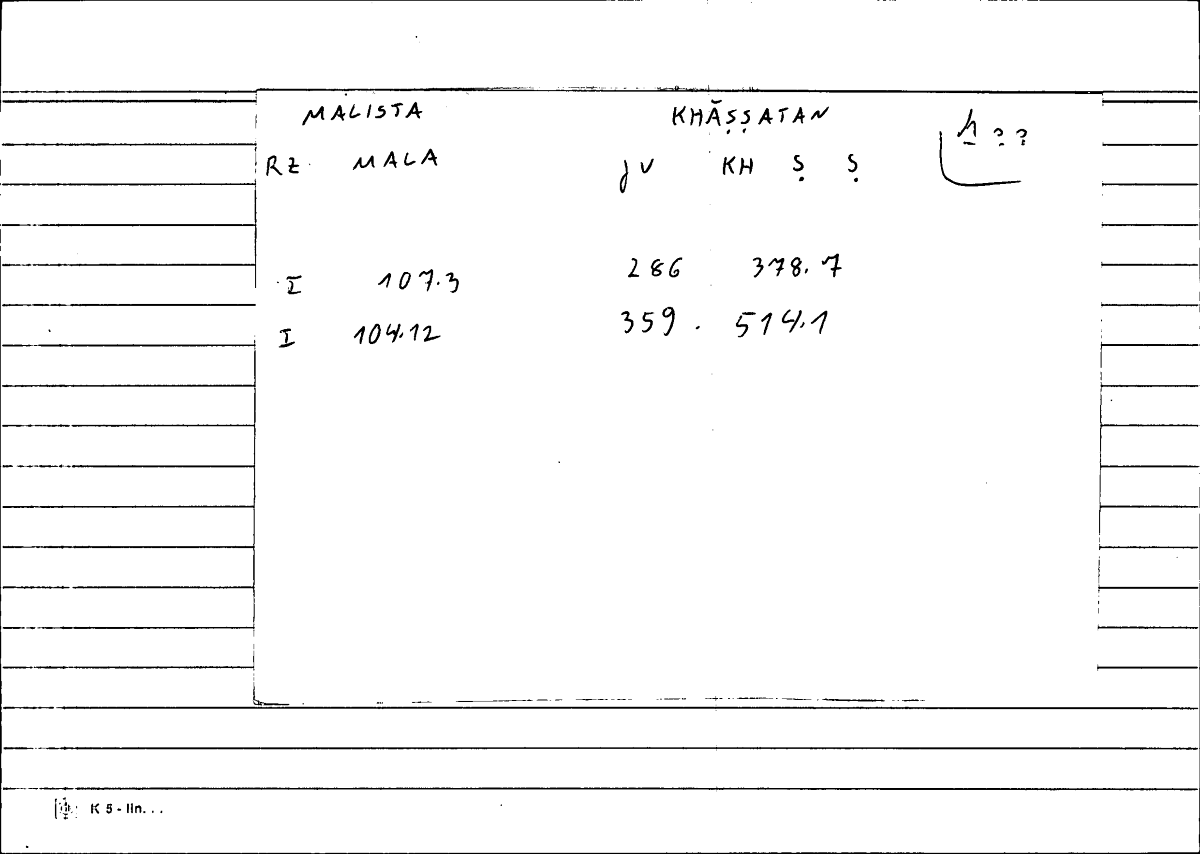 MALISTA KHĀṢṢATAN ḫ ??
RZ. MALA JV KH Ṣ Ṣ
I 107.3 286 378.7
I 104.12 359. 514.1
K 5 - lin...